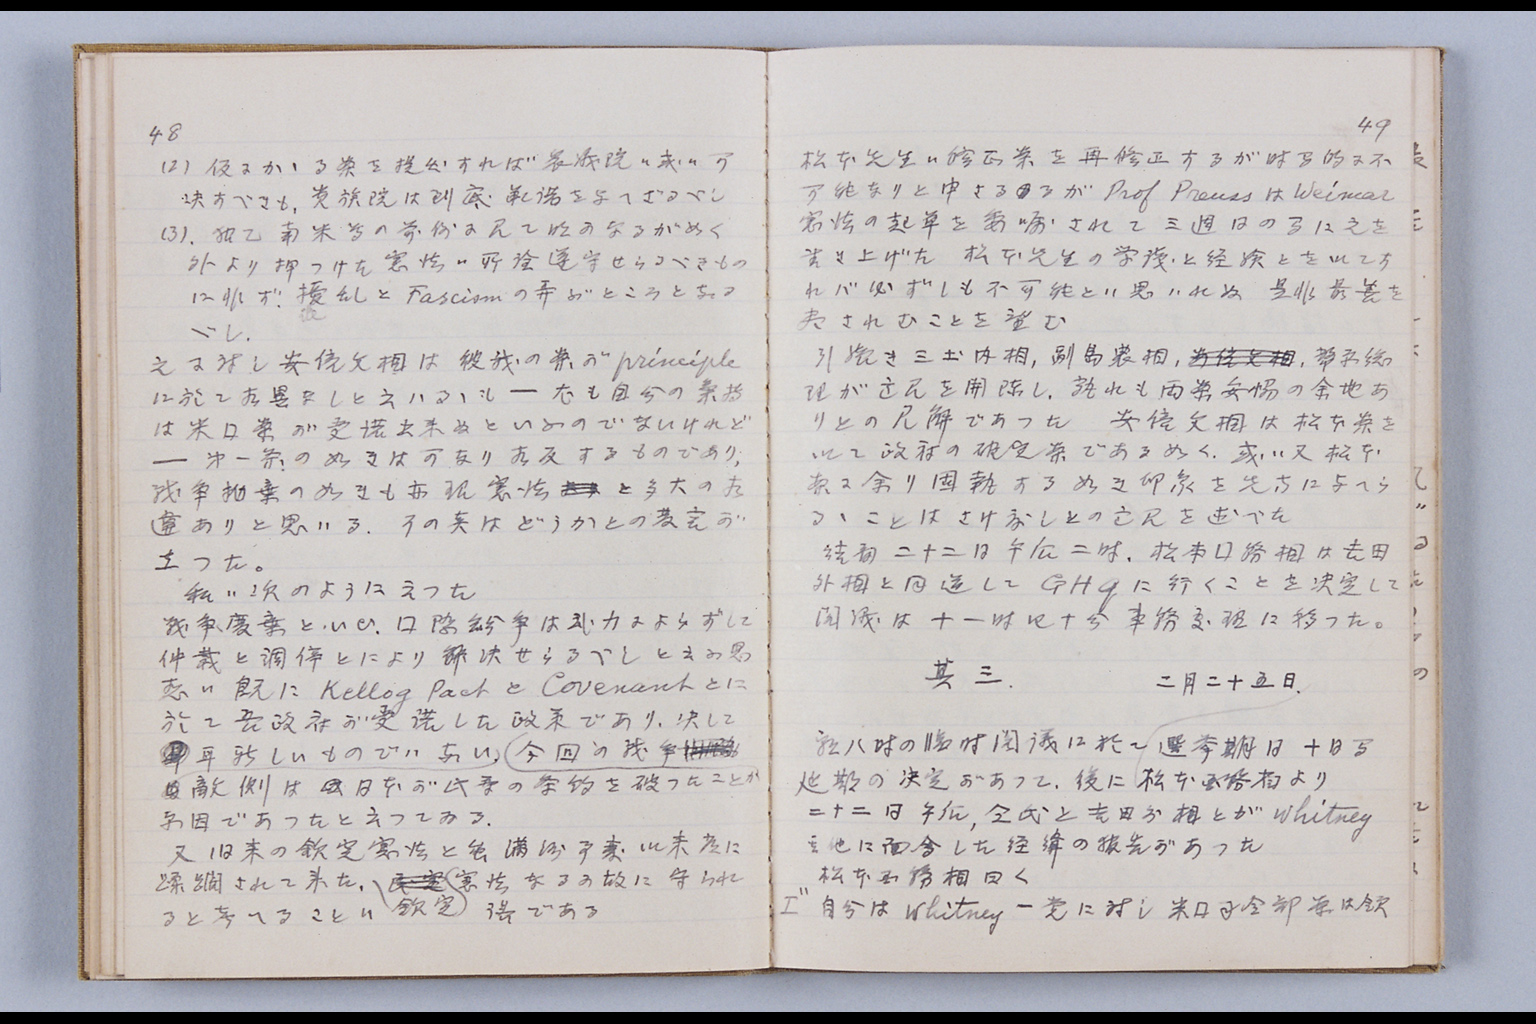 48
(2) 仮にかゝる案を提出すれば衆議院ハ或ハ可
決すべきも、貴族院は到底承諾を与へざるべし
(3). 独乙南米等の前例に見て明かなるが如く
外より押つけた憲法ハ所詮遵守せらるべきもの
に非ず! 擾乱と Fascism の再ぶところとなる
べし.
之に対し安倍文相は彼我の案が principle
に於て相異なしと云ハるゝも ― 尤も自分の素描
は米国案が受諾出来ぬといふのでないけれど
― 第一条の如きは可なり相反するものであり,
戦争抛棄の如きも亦現憲法と多大の相
違ありと思ハる. その点はどうかとの発言が
立つた。
私ハ次のように云つた
戦争廃棄といひ. 国際紛争は武力によらずして
仲裁と調停とにより解決せらるべしと云ふ思
想ハ既に Kellog Pact と Covenant とに
於て吾政府が受諾した政策であり. 決して
耳新しいものでハない, (今回の戦争
敵側は日本が此等の条約を破つたことが
原因であつたと云つてゐる.
又旧来の欽定憲法と雖満洲事変以来常に
蹂躙されて来た. 欽定憲法なるの故に守られ
ると考へることハ 誤である
49
松本先生ハ修正案を再修正するが時間的に不
可能なりと申さるゝが Prof Preuss は Weimar
憲法の起草を委嘱されて三週日の間に之を
書き上げた 松本先生の学識と経験とを以てす
れバ必ずしも不可能とハ思ハれぬ 是非最善を
尽されむことを望む
引続き三土内相, 副島農相, 安倍文相, 幣原総
理が意見を開陳し. 孰れも両案妥協の余地あ
りとの見解であつた 安倍文相は松本案を
以て政府の確定案である如く. 或ハ又松本
案に余り固執する如き印象を先方に与へら
るゝことはさけ度しとの意見を述べた
結局二十二日午后二時. 松本国務相は吉田
外相と同道して GHq に行くことを決定して
閣議は十一時四十分事務処理に移つた。
其三. 二月二十五日.
朝八時の臨時閣議に於て選挙期日十日間
延期の決定があつて. 後に松本国務相より
二十二日午后, 仝氏と吉田外相とが Whitney
其他に面会した経緯の報告があつた
松本国務相曰く
I" 自分は Whitney 一党に対し米国の全部案は欽